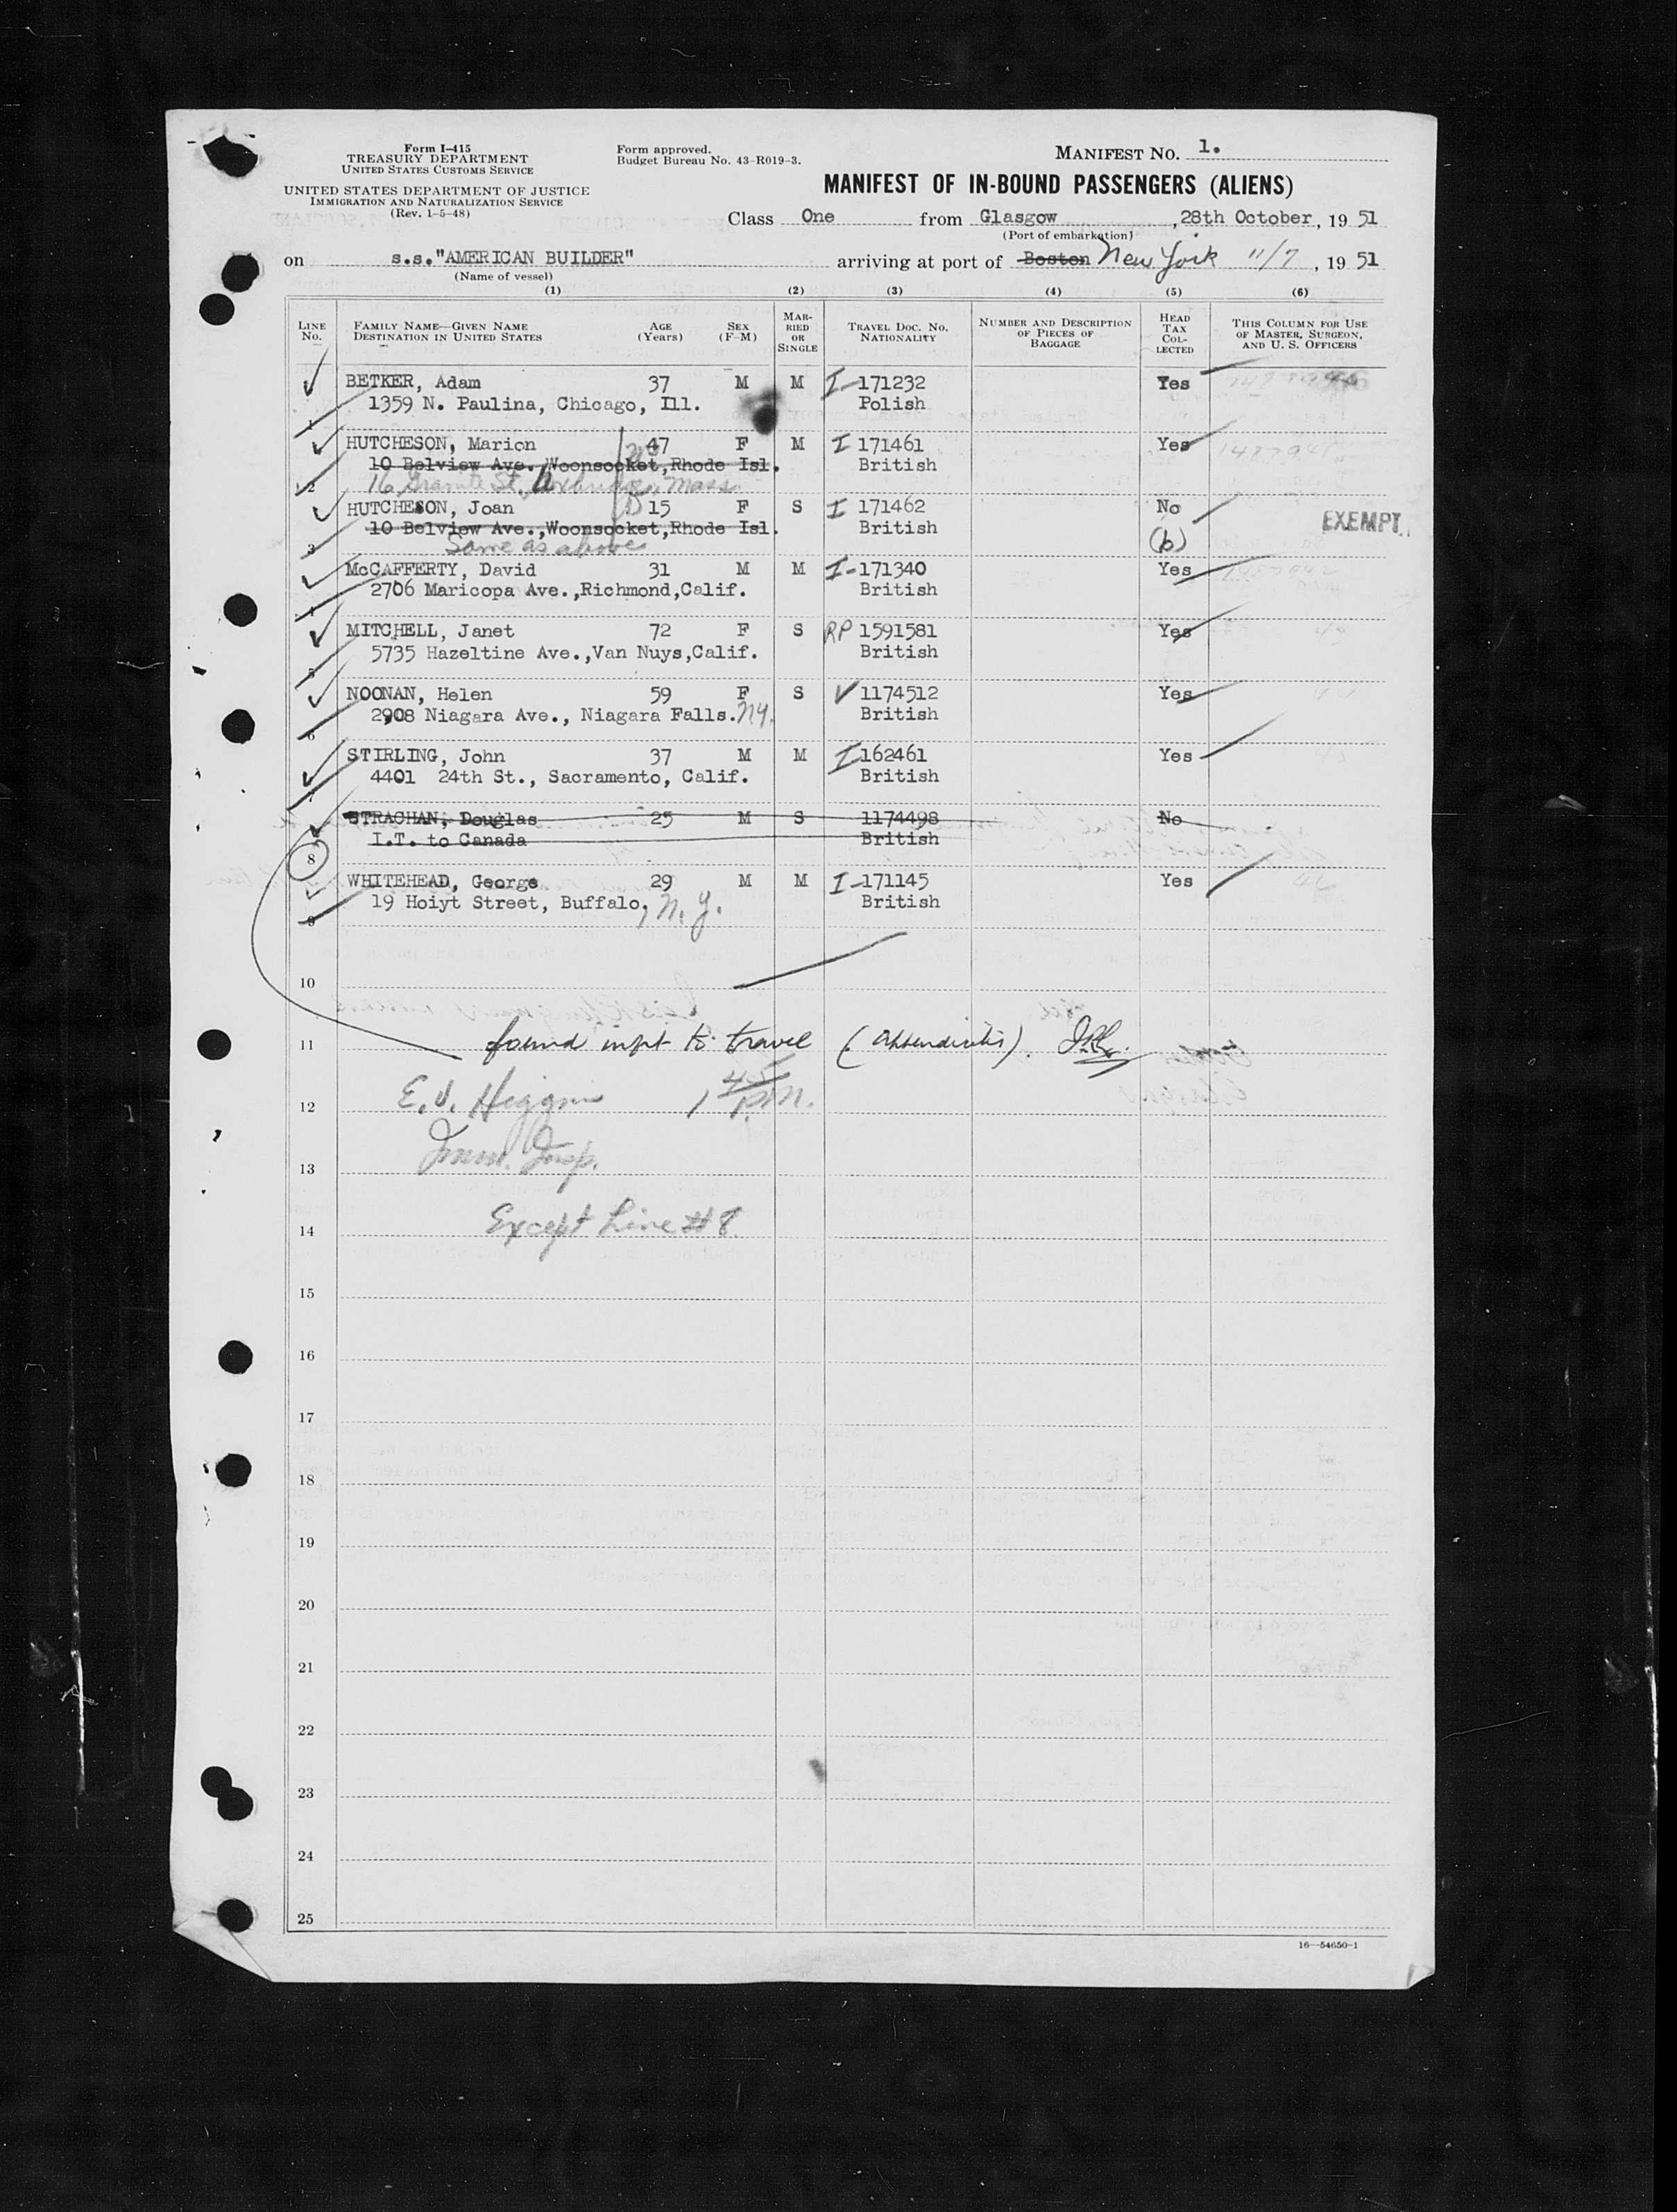 Form I-415
TREASURY DEPARTMENT
UNITED STATES CUSTOMS SERVICE
UNITED STATES DEPARTMENT OF JUSTICE
IMMIGRATION AND NATURALIZATION SERVICE
(Rev. 1-5-48)
Form approved.
Budget Bureau No. 43-R019-3.
MANIFEST NO. 1.
MANIFEST OF IN-BOUND PASSENGERS (ALIENS)
Class One from Glasgow, 28th October, 1951
(Port of embarkation)
on s.s."AMERICAN BUILDER" arriving at port of Boston New York 11/7, 1951
(Name of vessel)
(1) (2) (3) (4) (5) (6)
LINE NO. FAMILY NAME—GIVEN NAME DESTINATION IN UNITED STATES AGE (Years) SEX (F-M) MARRIED OR SINGLE TRAVEL DOC. NO. NATIONALITY NUMBER AND DESCRIPTION OF PIECES OF BAGGAGE HEAD TAX COLLECTED THIS COLUMN FOR USE OF MASTER, SURGEON, AND U. S. OFFICERS
BETKER, Adam 37 M M I-171232 Yes
1359 N. Paulina, Chicago, Ill. Polish
1
HUTCHESON, Marion 47 F M I 171461 Yes
10 Belview Ave. Woonsocket,Rhode Isl. British
2 16 Granite St., Uxbridge, Mass.
HUTCHESON, Joan 15 F S I 171462 No
10 Belview Ave.,Woonsocket,Rhode Isl. British EXEMPT.
3 Same as above (b)
McCAFFERTY, David 31 M M I-171340 Yes
2706 Maricopa Ave.,Richmond,Calif. British
4
MITCHELL, Janet 72 F S RP 1591581 Yes
5735 Hazeltine Ave.,Van Nuys,Calif. British
5
NOONAN, Helen 59 F S V 1174512 Yes
2908 Niagara Ave., Niagara Falls. N.Y. British
6
STIRLING, John 37 M M I 162461 Yes
4401 24th St., Sacramento, Calif. British
7
STRACHAN, Douglas 25 M S 1174498 No
I.T. to Canada British
8
WHITEHEAD, George 29 M M I-171145 Yes
19 Hoiyt Street, Buffalo, N.Y. British
9
10
11 found unfit to travel (appendicitis).
12 E. J. Higgins 1 45 P.M.
13 Imm. Insp.
14 Except Line #8
15
16
17
18
19
20
21
22
23
24
25
16—54650-1